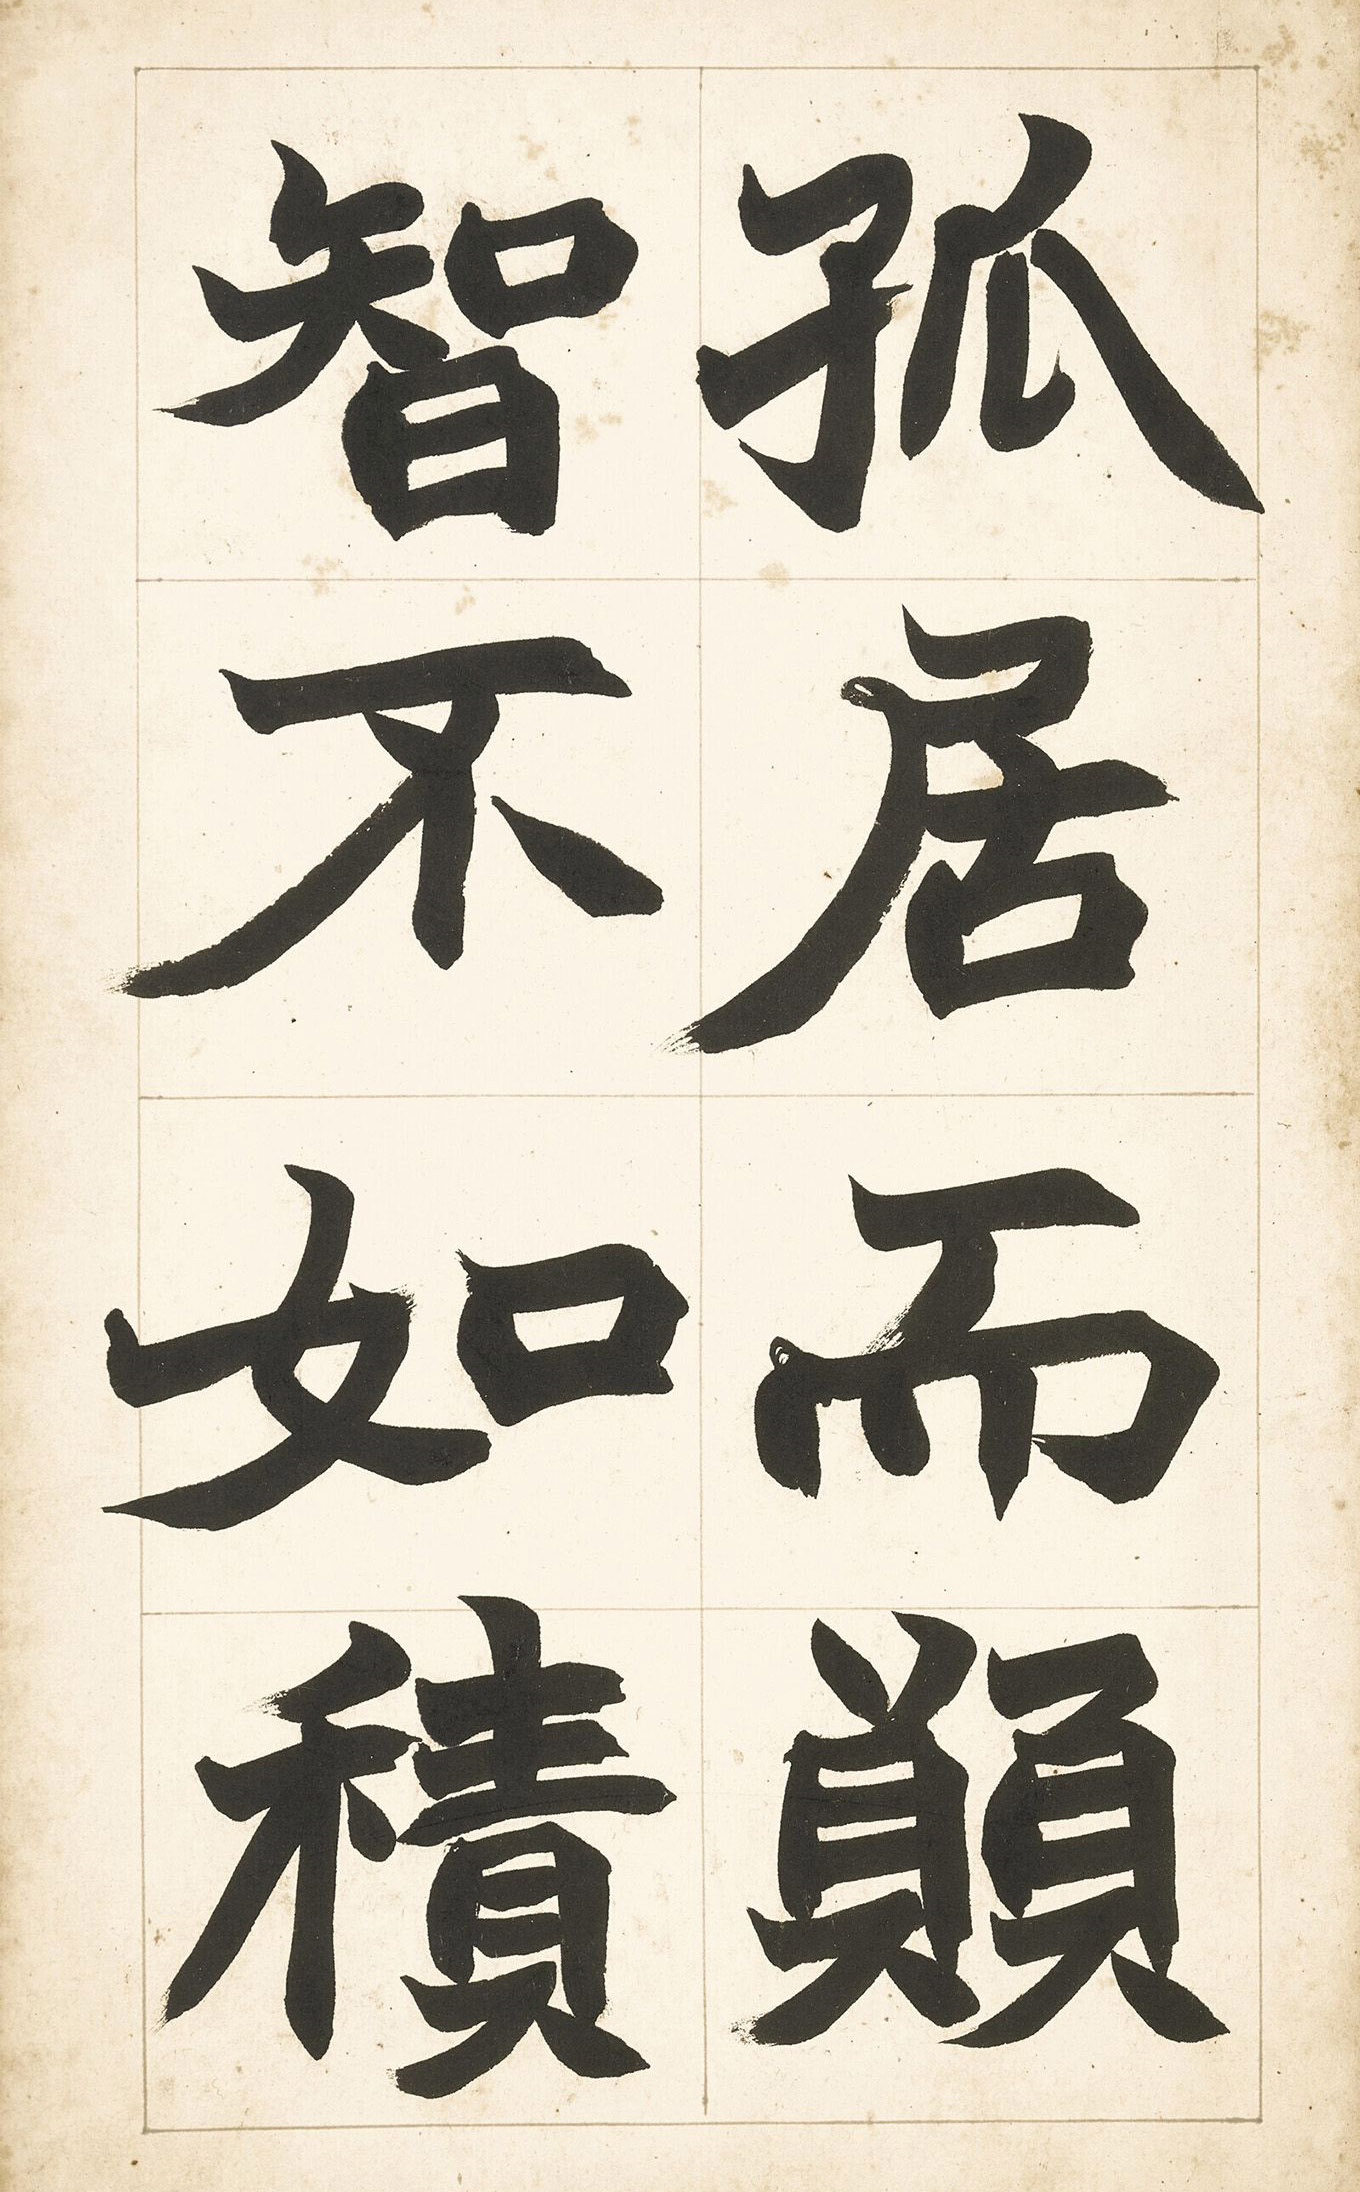 孤居而願
智不如積